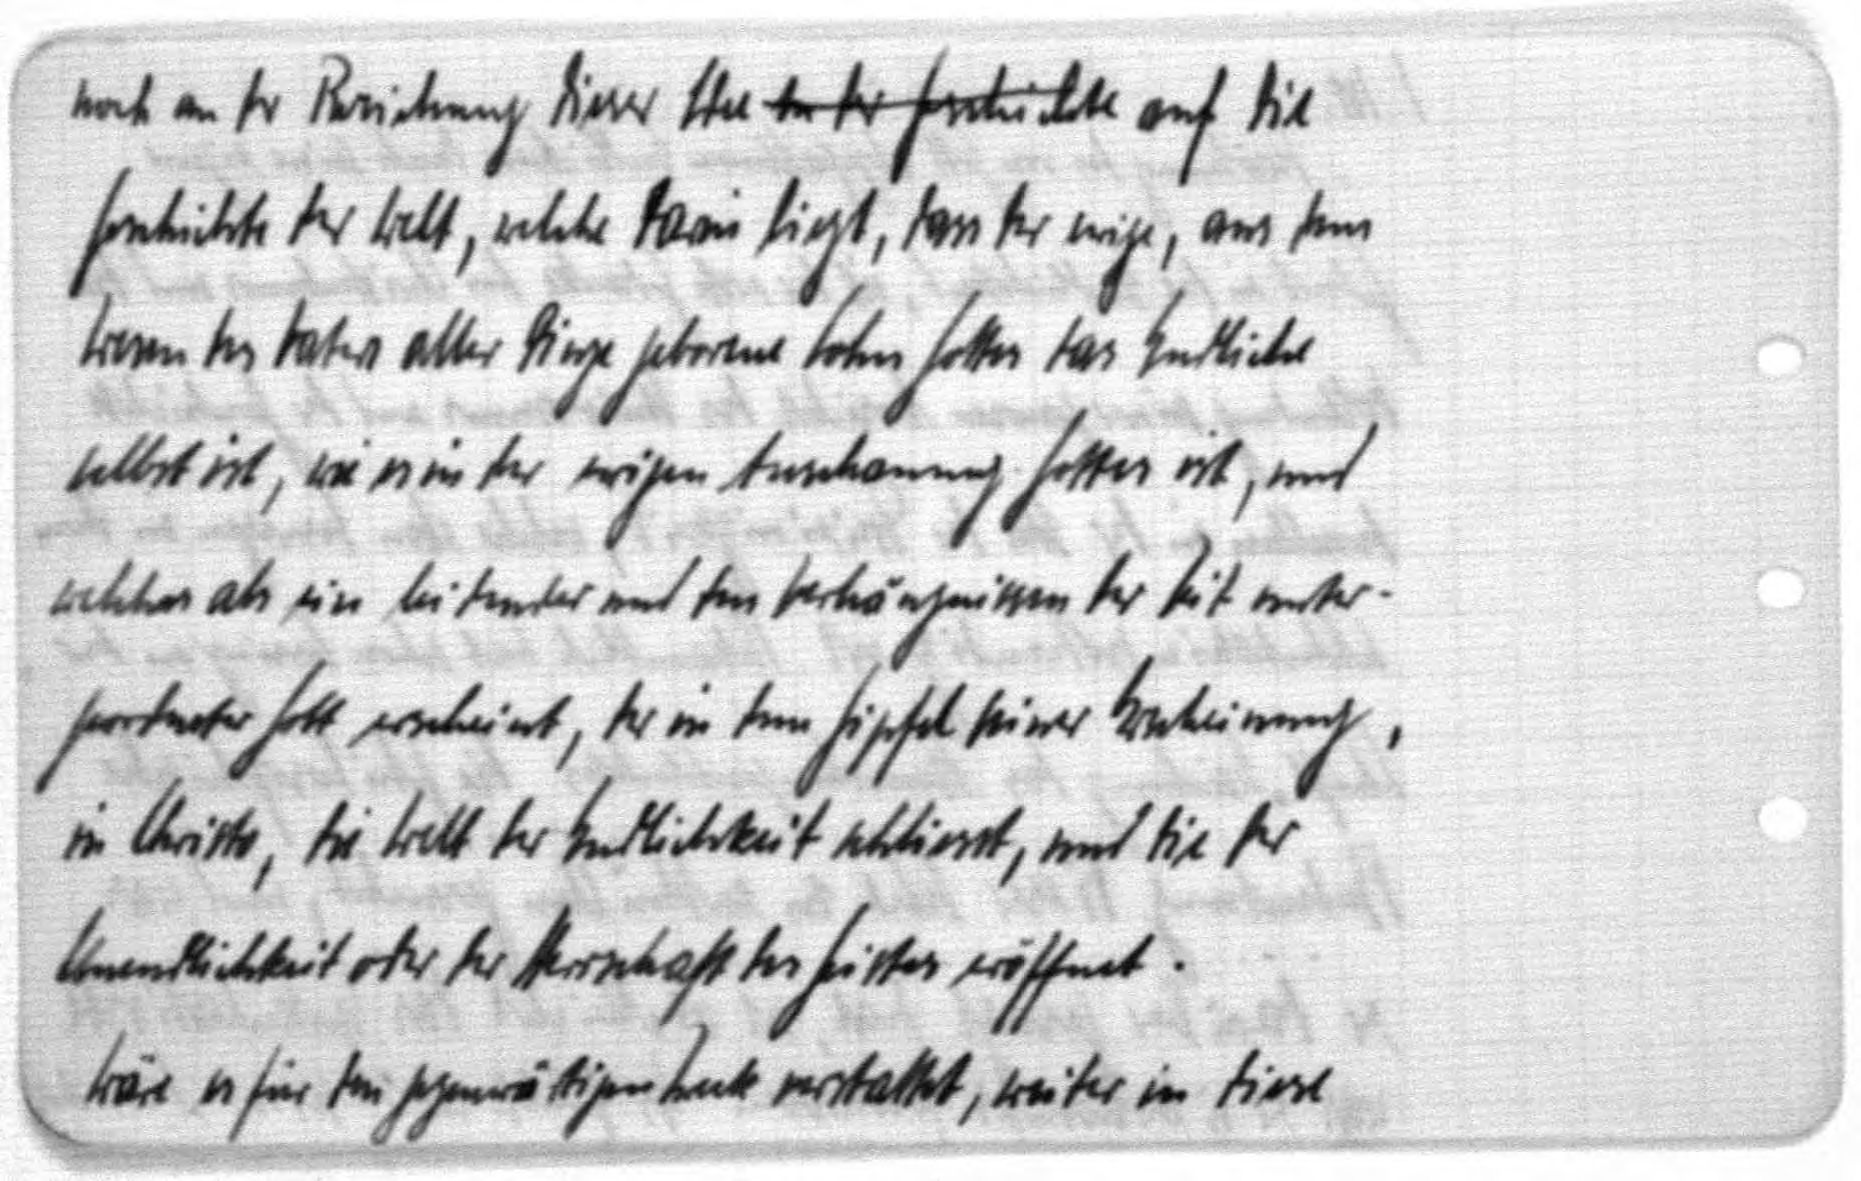 noch an der Beziehung dieser Idee in der Geschichte auf die
Geschichte der Welt, welche darin liegt, dass der ewige, aus dem
Wesen des Vaters aller Dinge geborene Sohn Gottes das Endliche
selbst ist, wie es in der ewigen Anschauung Gottes ist, und
welches als ein leidender und den Verhängnissen der Zeit unter-
geordneter Gott erscheint, der in dem Gipfel seiner Erscheinung,
in Christo, die Welt der Endlichkeit schliesst, und die der
Unendlichkeit oder der Herrschaft des Geistes eröffnet.
Wäre es für den gegenwärtigen Zweck verstattet, weiter in diese